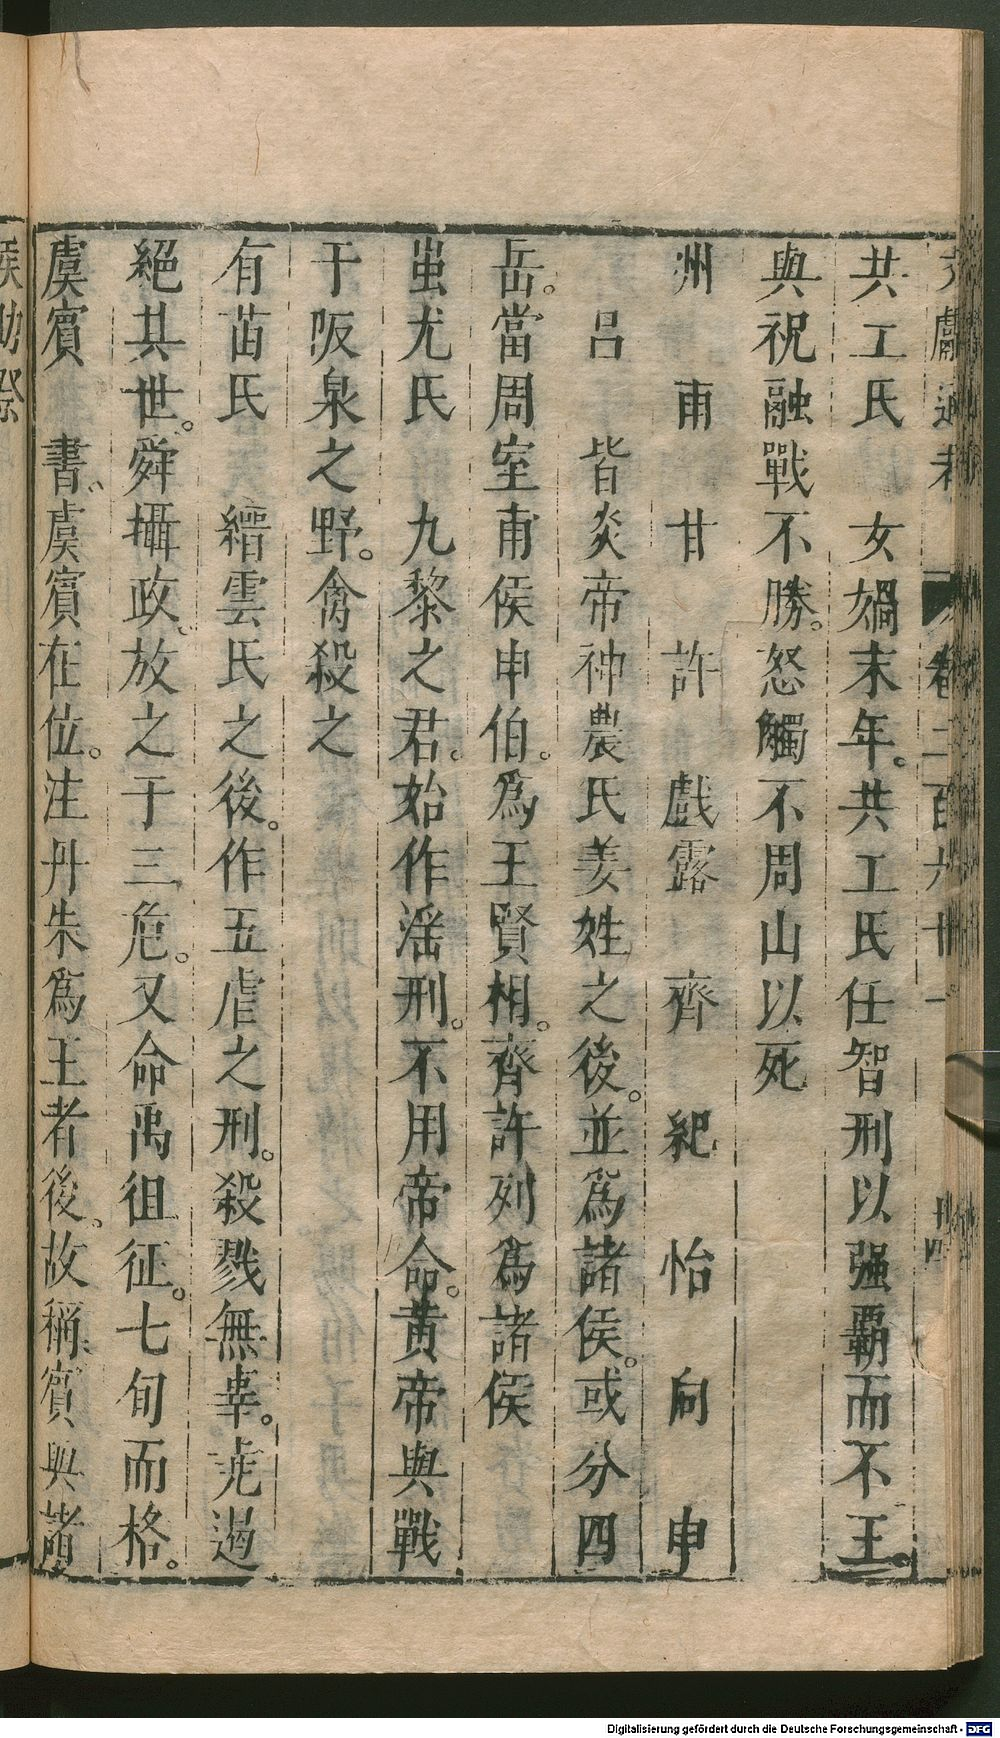 文獻通考 卷二百六十一 十四
共工氏 女媧末年。共工氏任智刑以强霸而不王。
與祝融戰不勝。怒觸不周山以死
州 甫 甘 許 戲 露 齊 紀 怡 向 申
呂 皆炎帝神農氏姜姓之後。並爲諸侯。或分四
岳。當周室甫侯申伯。爲王賢相。齊許列爲諸侯
蚩尤氏 九黎之君。始作淫刑。不用帝命。黃帝與戰
于阪泉之野。禽殺之
有苗氏 縉雲氏之後。作五虐之刑。殺戮無辜。堯遏
絕其世。舜攝政。放之于三危。又命禹徂征。七旬而格。
虞賓 書。虞賓在位。注丹朱爲王者後。故稱賓與諸
侯助祭
Digitalisierung gefördert durch die Deutsche Forschungsgemeinschaft - DFG